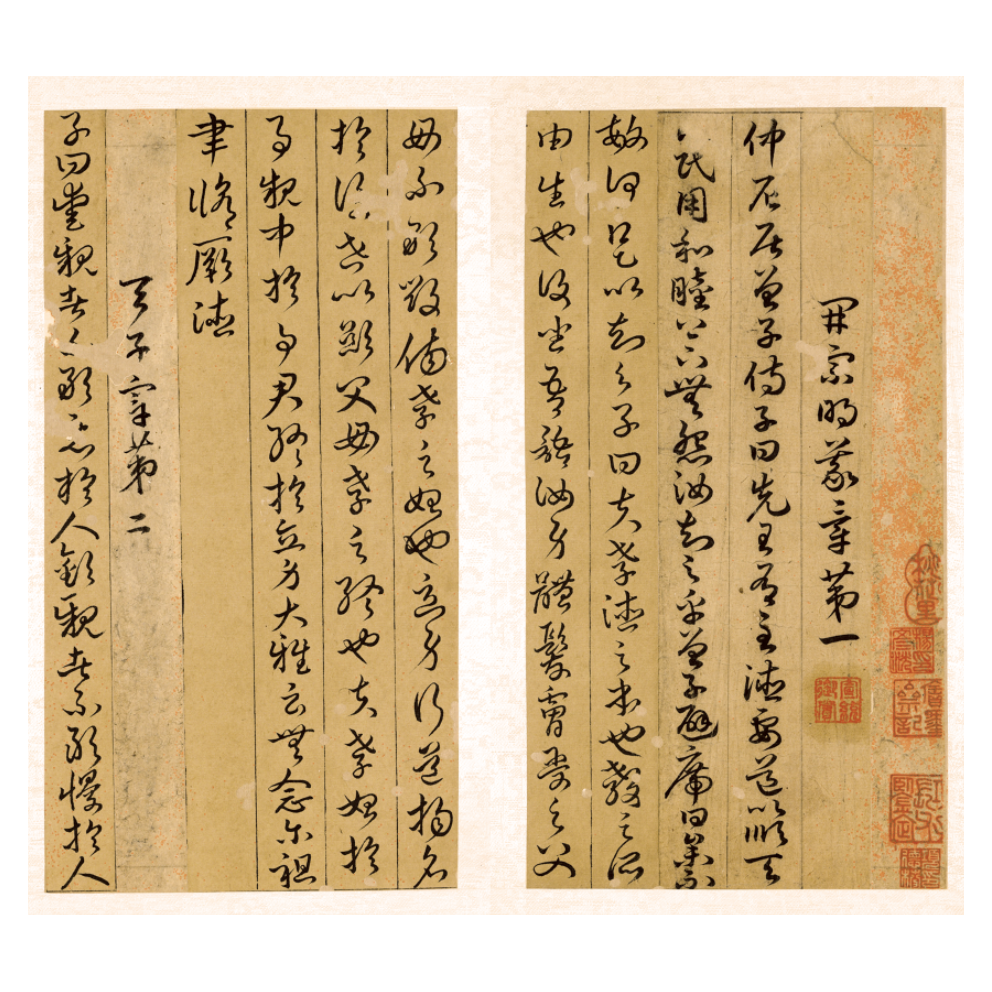 開宗明義章第一
仲尼居曾子侍子曰先王有至德要道以順天
下民用和睦上下無怨汝知之乎曾子避席曰參不
敏何足以知之子曰夫孝德之本也教之所
由生也復坐吾語汝身體髮膚受之父
母不敢毀傷孝之始也立身行道揚名
於後世以顯父母孝之終也夫孝始於
事親中於事君終於立身大雅云無念爾祖
聿脩厥德
天子章第二
子曰愛親者不敢惡於人敬親者不敢慢於人